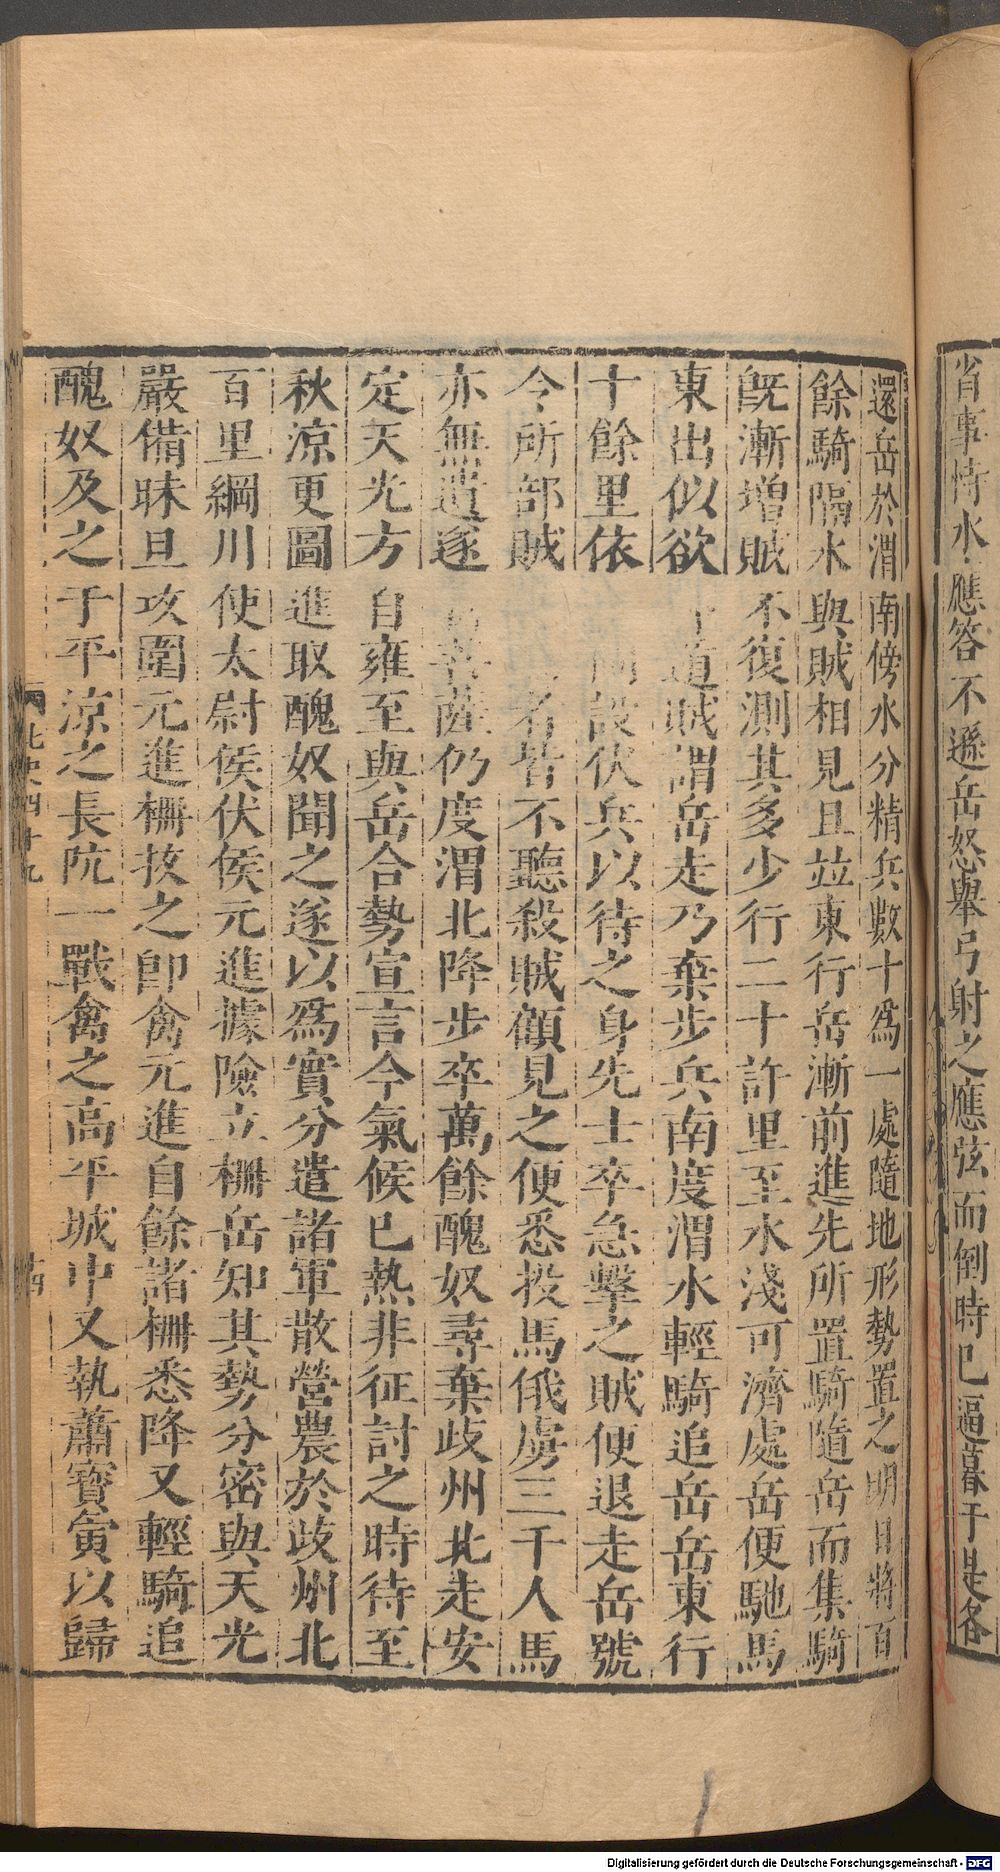 省事恃水應答不遜岳怒舉弓射之應弦而倒時已逼暮于是各
還岳於渭南傍水分精兵數十爲一處隨地形勢置之明日將百
餘騎隔水與賊相見且竝東行岳漸前進先所置騎隨岳而集騎
旣漸增賊不復測其多少行二十許里至水淺可濟處岳便馳馬
東出似欲道賊謂岳走乃棄步兵南度渭水輕騎追岳岳東行
十餘里依岡設伏兵以待之身先士卒急擊之賊便退走岳號
令所部賊者皆不聽殺賊顧見之便悉投馬俄虜三千人馬
亦無遺遂菩薩仍度渭北降步卒萬餘醜奴尋棄歧州北走安
定天光方自雍至與岳合勢宣言今氣候已熱非征討之時待至
秋涼更圖進取醜奴聞之遂以爲實分遣諸軍散營農於歧州北
百里綱川使太尉侯伏侯元進據險立柵岳知其勢分密與天光
嚴備昧旦攻圍元進柵拔之卽禽元進自餘諸柵悉降又輕騎追
醜奴及之于平涼之長阬一戰禽之高平城中又執蕭寶寅以歸
北史四十九
Digitalisierung gefördert durch die Deutsche Forschungsgemeinschaft - DFG